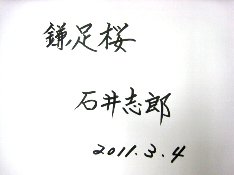 鎌足桜
石井志郎
2011.3.4